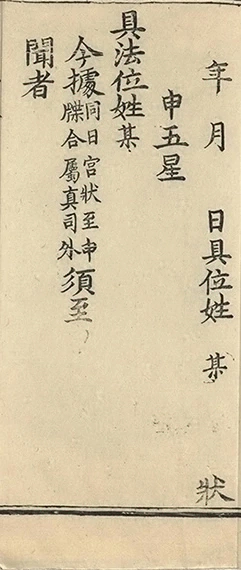 年 月 日具位姓 某 狀
申五星
具法位姓某
今據同日宫狀至申牒合屬真司外須至
聞者